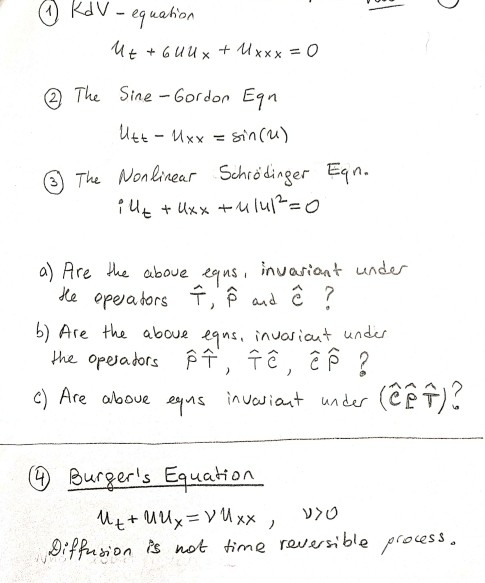 ① KdV - equation
u_t + 6uu_x + u_xxx = 0
② The Sine - Gordon Eqn
u_tt - u_xx = sin(u)
③ The Nonlinear Schrödinger Eqn.
i u_t + u_xx + u|u|² = 0
a) Are the above eqns, invariant under
the operators T̂, P̂ and Ĉ ?
b) Are the above eqns, invariant under
the operators P̂T̂, T̂Ĉ, ĈP̂ ?
c) Are above eqns invariant under (ĈP̂T̂)?
④ Burger's Equation
u_t + uu_x = νu_xx , ν>0
Diffusion is not time reversible process.